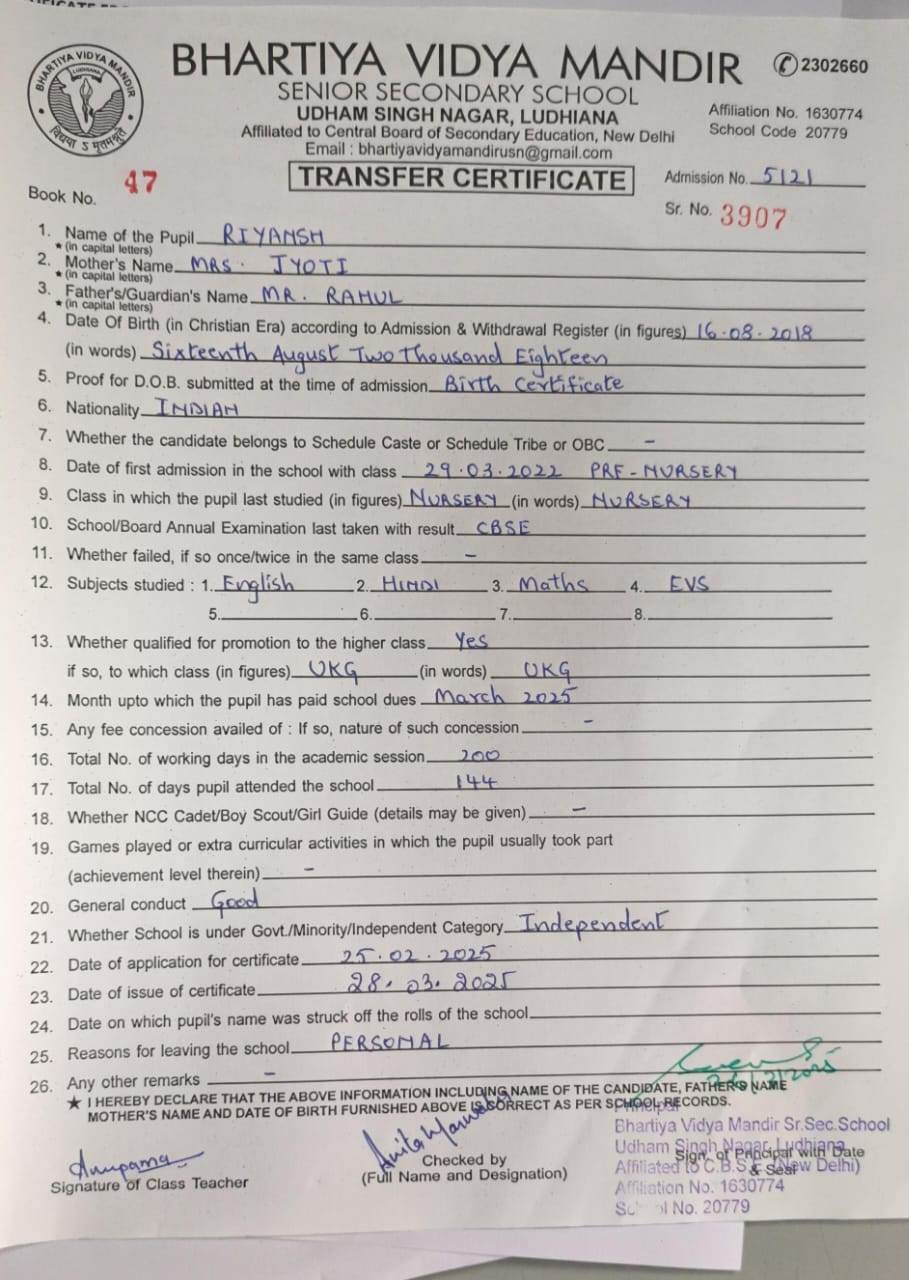 BHARTIYA VIDYA MANDIR
LUDHIANA
विद्यया ऽ मृतमश्नुते
BHARTIYA VIDYA MANDIR
✆2302660
SENIOR SECONDARY SCHOOL
UDHAM SINGH NAGAR, LUDHIANA
Affiliation No. 1630774
Affiliated to Central Board of Secondary Education, New Delhi
School Code 20779
Email : bhartiyavidyamandirusn@gmail.com
Book No. 47
TRANSFER CERTIFICATE
Admission No. 5121
Sr. No. 3907
1. Name of the Pupil RIYANSH
* (in capital letters)
2. Mother's Name MRS. JYOTI
* (in capital letters)
3. Father's/Guardian's Name MR. RAHUL
* (in capital letters)
4. Date Of Birth (in Christian Era) according to Admission & Withdrawal Register (in figures) 16.08.2018
(in words) Sixteenth August Two Thousand Eighteen
5. Proof for D.O.B. submitted at the time of admission Birth Certificate
6. Nationality INDIAN
7. Whether the candidate belongs to Schedule Caste or Schedule Tribe or OBC –
8. Date of first admission in the school with class 29.03.2022 PRE-NURSERY
9. Class in which the pupil last studied (in figures) NURSERY (in words) NURSERY
10. School/Board Annual Examination last taken with result CBSE
11. Whether failed, if so once/twice in the same class –
12. Subjects studied : 1. English 2. HINDI 3. Maths 4. EVS
5. 6. 7. 8.
13. Whether qualified for promotion to the higher class Yes
if so, to which class (in figures) UKG (in words) UKG
14. Month upto which the pupil has paid school dues March 2025
15. Any fee concession availed of : If so, nature of such concession –
16. Total No. of working days in the academic session 200
17. Total No. of days pupil attended the school 144
18. Whether NCC Cadet/Boy Scout/Girl Guide (details may be given) –
19. Games played or extra curricular activities in which the pupil usually took part
(achievement level therein) –
20. General conduct Good
21. Whether School is under Govt./Minority/Independent Category Independent
22. Date of application for certificate 25.02.2025
23. Date of issue of certificate 28.03.2025
24. Date on which pupil's name was struck off the rolls of the school
25. Reasons for leaving the school PERSONAL
26. Any other remarks –
★ I HEREBY DECLARE THAT THE ABOVE INFORMATION INCLUDING NAME OF THE CANDIDATE, FATHER'S NAME
MOTHER'S NAME AND DATE OF BIRTH FURNISHED ABOVE IS CORRECT AS PER SCHOOL RECORDS.
Principal
Bhartiya Vidya Mandir Sr.Sec.School
Udham Singh Nagar, Ludhiana
Affiliated to C.B.S.E (New Delhi)
Affiliation No. 1630774
School No. 20779
Sign. of Principal with Date
& Seal
Anupama
Signature of Class Teacher
Checked by
(Full Name and Designation)